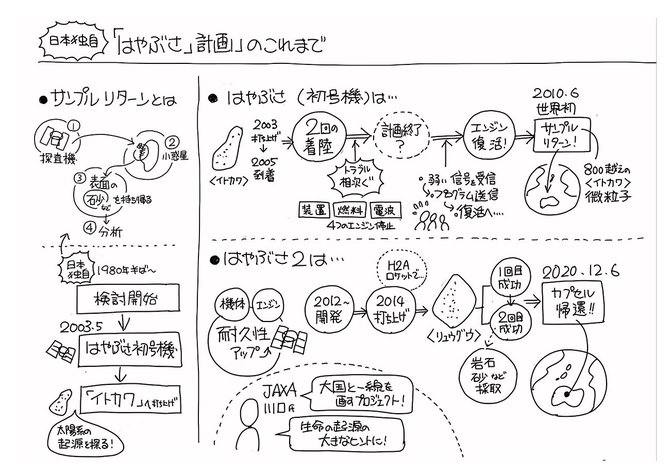 日本独自
「はやぶさ」計画」のこれまで
●サンプルリターンとは
①
探査機
②
小惑星
③
表面の
石砂など
を持ち帰る
④分析
日本
独自
1980年半ば〜
検討開始
2003.5
はやぶさ初号機
「イトカワ」へ打ち上げ
太陽系の
起源を探る!
●はやぶさ(初号機)は…
<イトカワ>
2003
打ち上げ
2005
到着
2回の
着陸
トラブル
相次ぐ
装置
燃料
電波
4つのエンジン停止
計画終了
?
弱い信号を受信
プログラム送信
復活へ…
エンジン
復活!
2010.6
世界初
サンプル
リターン!
800越えの
<イトカワ>
微粒子
●はやぶさ2は…
機体
エンジン
耐久性
アップ
2012〜
開発
H2A
ロケットで…
2014
打ち上げ
<リュウグウ>
1回目
成功
2回目
成功
岩石
砂など
採取
2020.12.6
カプセル
帰還!!
JAXA
川口氏
大国と一線を
画すプロジェクト!
生命の起源の
大きなヒントに!